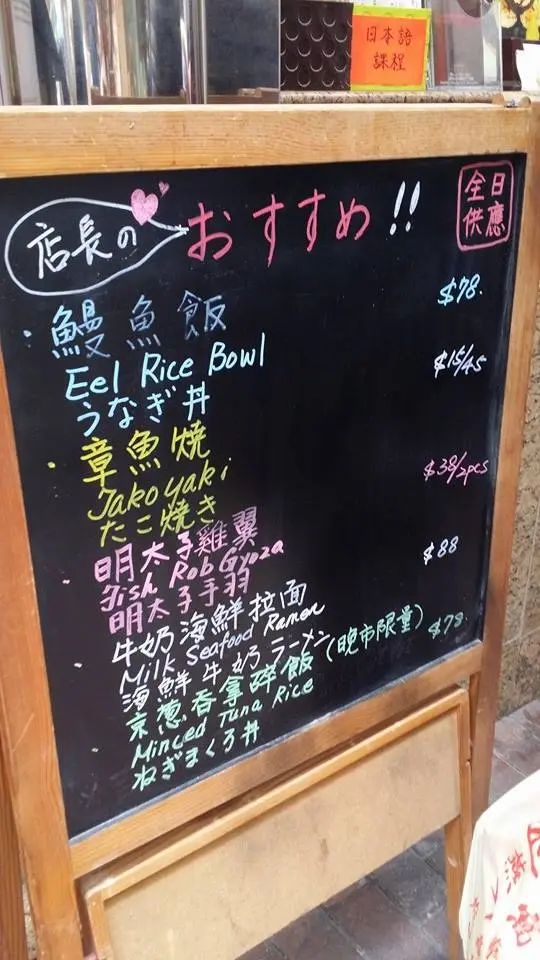 日本語
課程
店長の
おすすめ!!
全日
供應
鰻魚飯
$78.
Eel Rice Bowl
うなぎ丼
章魚燒
$15/45
Takoyaki
たこ焼き
明太子雞翼
$38/2pcs
Fish Rob Gyoza
明太子手羽
牛奶海鮮拉面
$88
Milk Seafood Ramen
海鮮牛奶ラーメン
京葱吞拿碎飯(晚市限量)
$78
Minced Tuna Rice
ねぎまくろ丼